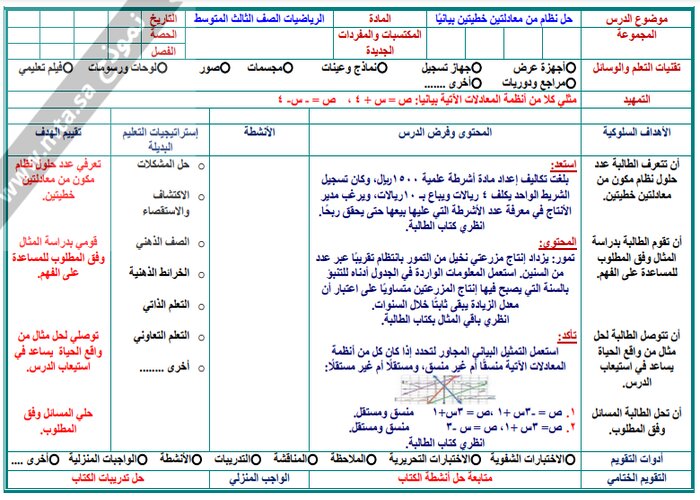 موضوع الدرس
حل نظام من معادلتين خطيتين بيانيًا
المادة
الرياضيات الصف الثالث المتوسط
التاريخ
المجموعة
المكتسبات والمفردات الجديدة
الحصة
الفصل
تقنيات التعلم والوسائل
أجهزة عرض
جهاز تسجيل
نماذج وعينات
مجسمات
صور
لوحات ورسومات
فيلم تعليمي
مراجع ودوريات
أخرى .......
التمهيد
مثلي كلا من أنظمة المعادلات الآتية بيانيا: ص = س + ٤ ، ص = - س- ٤
الأهداف السلوكية
المحتوى وفرض الدرس
الأنشطة
إستراتيجيات التعليم البديلة
تقييم الهدف
أن تتعرف الطالبة عدد
حلول نظام مكون من
معادلتين خطيتين.
أن تقوم الطالبة بدراسة
المثال وفق المطلوب
للمساعدة على الفهم.
أن تتوصل الطالبة لحل
مثال من واقع الحياة
يساعد في استيعاب
الدرس.
أن تحل الطالبة المسائل
وفق المطلوب.
استعد:
بلغت تكاليف إعداد مادة أشرطة علمية ١٥٠٠ريال، وكان تسجيل
الشريط الواحد يكلف ٤ ريالات ويباع بـ ١٠ريالات، ويرغب مدير
الأنتاج في معرفة عدد الأشرطة التي عليها بيعها حتى يحقق ربحًا.
انظري كتاب الطالبة.
المحتوى:
تمور: يزداد إنتاج مزرعتي نخيل من التمور بانتظام تقريبًا عبر عدد
من السنين. استعمل المعلومات الواردة في الجدول أدناه للتنبؤ
بالسنة التي يصبح فيها إنتاج المزرعتين متساويًا على اعتبار أن
معدل الزيادة يبقى ثابتًا خلال السنوات.
انظري باقي المثال بكتاب الطالبة.
تأكد:
استعمل التمثيل البياني المجاور لتحدد إذا كان كل من أنظمة
المعادلات الآتية منسقًا أم غير منسق، ومستقلًا أم غير مستقلًا:
١. ص = -٣س +١ ،ص = ٣س+١ منسق ومستقل.
٢. ص = ٣س +١ ، ص = س -٣ منسق ومستقل.
انظري كتاب الطالبة.
حل المشكلات
الاكتشاف
والاستقصاء
الصف الذهني
الخرائط الذهنية
التعلم الذاتي
التعلم التعاوني
أخرى ........
تعرفي عدد حلول نظام
مكون من معادلتين
خطيتين.
قومي بدراسة المثال
وفق المطلوب للمساعدة
على الفهم.
توصلي لحل مثال من
واقع الحياة يساعد في
استيعاب الدرس.
حلي المسائل وفق
المطلوب.
أدوات التقويم
الاختبارات الشفوية
الاختبارات التحريرية
الملاحظة
المناقشة
التدريبات
الأنشطة
الواجبات المنزلية
أخرى ....
التقويم الختامي
متابعة حل أنشطة الكتاب
الواجب المنزلي
حل تدريبات الكتاب
نموذج
www.mta.sa